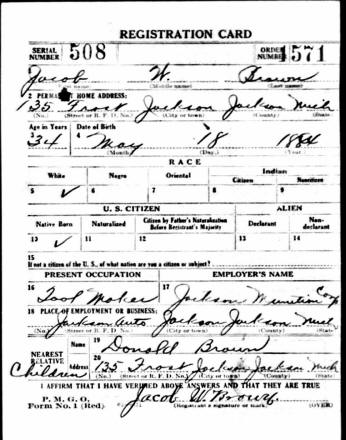 REGISTRATION CARD
SERIAL NUMBER 508 ORDER NUMBER 1571
1 Jacob W. Brown
(First name) (Middle name) (Last name)
2 PERMANENT HOME ADDRESS:
135 Frost Jackson Jackson Mich
(No.) (Street or R. F. D. No.) (City or town) (County) (State)
Age in Years Date of Birth
3 34 4 May 18 1884
(Month) (Day) (Year)
RACE
White Negro Oriental Indian
Citizen Noncitizen
5 ✓ 6 7 8 9
U. S. CITIZEN ALIEN
Native Born Naturalized Citizen by Father's Naturalization Before Registrant's Majority Declarant Non-declarant
10 ✓ 11 12 13 14
15
If not a citizen of the U. S., of what nation are you a citizen or subject?
PRESENT OCCUPATION EMPLOYER'S NAME
16 Tool Maker 17 Jackson Munition Corp
18 PLACE OF EMPLOYMENT OR BUSINESS:
Jackson Auto Jackson Jackson Mich
(No.) (Street or R. F. D. No.) (City or town) (County) (State)
NEAREST RELATIVE Name 19 Donald Brown
Children Address 20 135 Frost Jackson Jackson Mich
(No.) (Street or R. F. D. No.) (City or town) (County) (State)
I AFFIRM THAT I HAVE VERIFIED ABOVE ANSWERS AND THAT THEY ARE TRUE
P. M. G. O.
Form No. 1 (Red) Jacob W. Brown
(Registrant's signature or mark) (OVER)